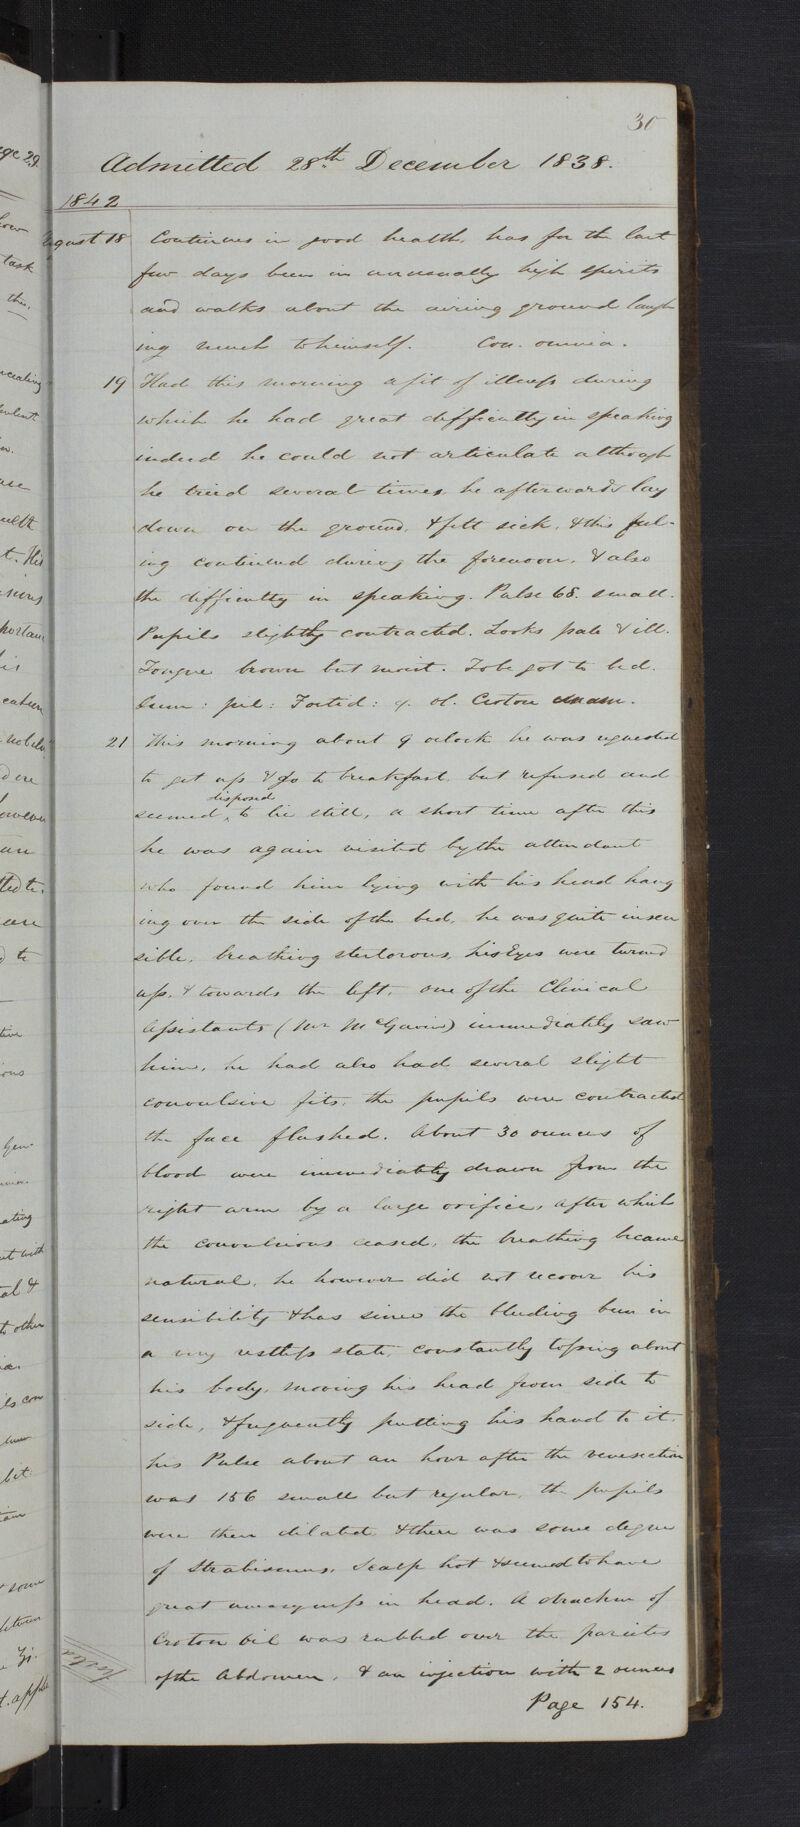 30
Admitted 28th December 1838.
1842
August 18 Continues in good health, has for the last
few days been in unusually high spirits
and walks about the airing ground laugh
ing much to himself. Con. omnia.
19 Had this morning a fit of illness during
which he had great difficulty in speaking
indeed he could not articulate although
he tried several times, he afterwards lay
down on the ground, & felt sick, & this feel-
ing continued during the forenoon, & also
the difficulty in speaking. Pulse 68. small.
Pupils slightly contracted. Looks pale & ill.
Tongue brown but moist. To be got to bed.
pil: Foetid: ol. Croton
21 This morning about 9 oclock he was requested
to get up & go to breakfast, but refused and
seemed disposed to lie still, a short time after this
he was again visited by the attendant
who found him lying with his head hang
ing over the side of the bed, he was quite insen
sible, breathing stertorous, his Eyes were turned
up, & towards the left, one of the Clinical
Assistants (Mr McGavin) immediately saw
him, he had also had several slight
convulsive fits, the pupils were contracted
the face flushed. About 30 ounces of
blood were immediately drawn from the
right arm by a large orifice, after which
the convulsions ceased, the breathing became
natural, he however did not recover his
sensibility & has since the bleeding been in
a very restless state, constantly tossing about
his body, moving his head from side to
side, & frequently putting his hand to it.
his Pulse about an hour after the venesection
was 156 small but regular, the pupils
were then dilated & there was some degree
of Strabismus. Scalp hot & seemed to have
great uneasyness in head. A drachm of
Croton oil was rubbed over the parietes
of the Abdomen, & an injection with 2 ounces
Page 154.